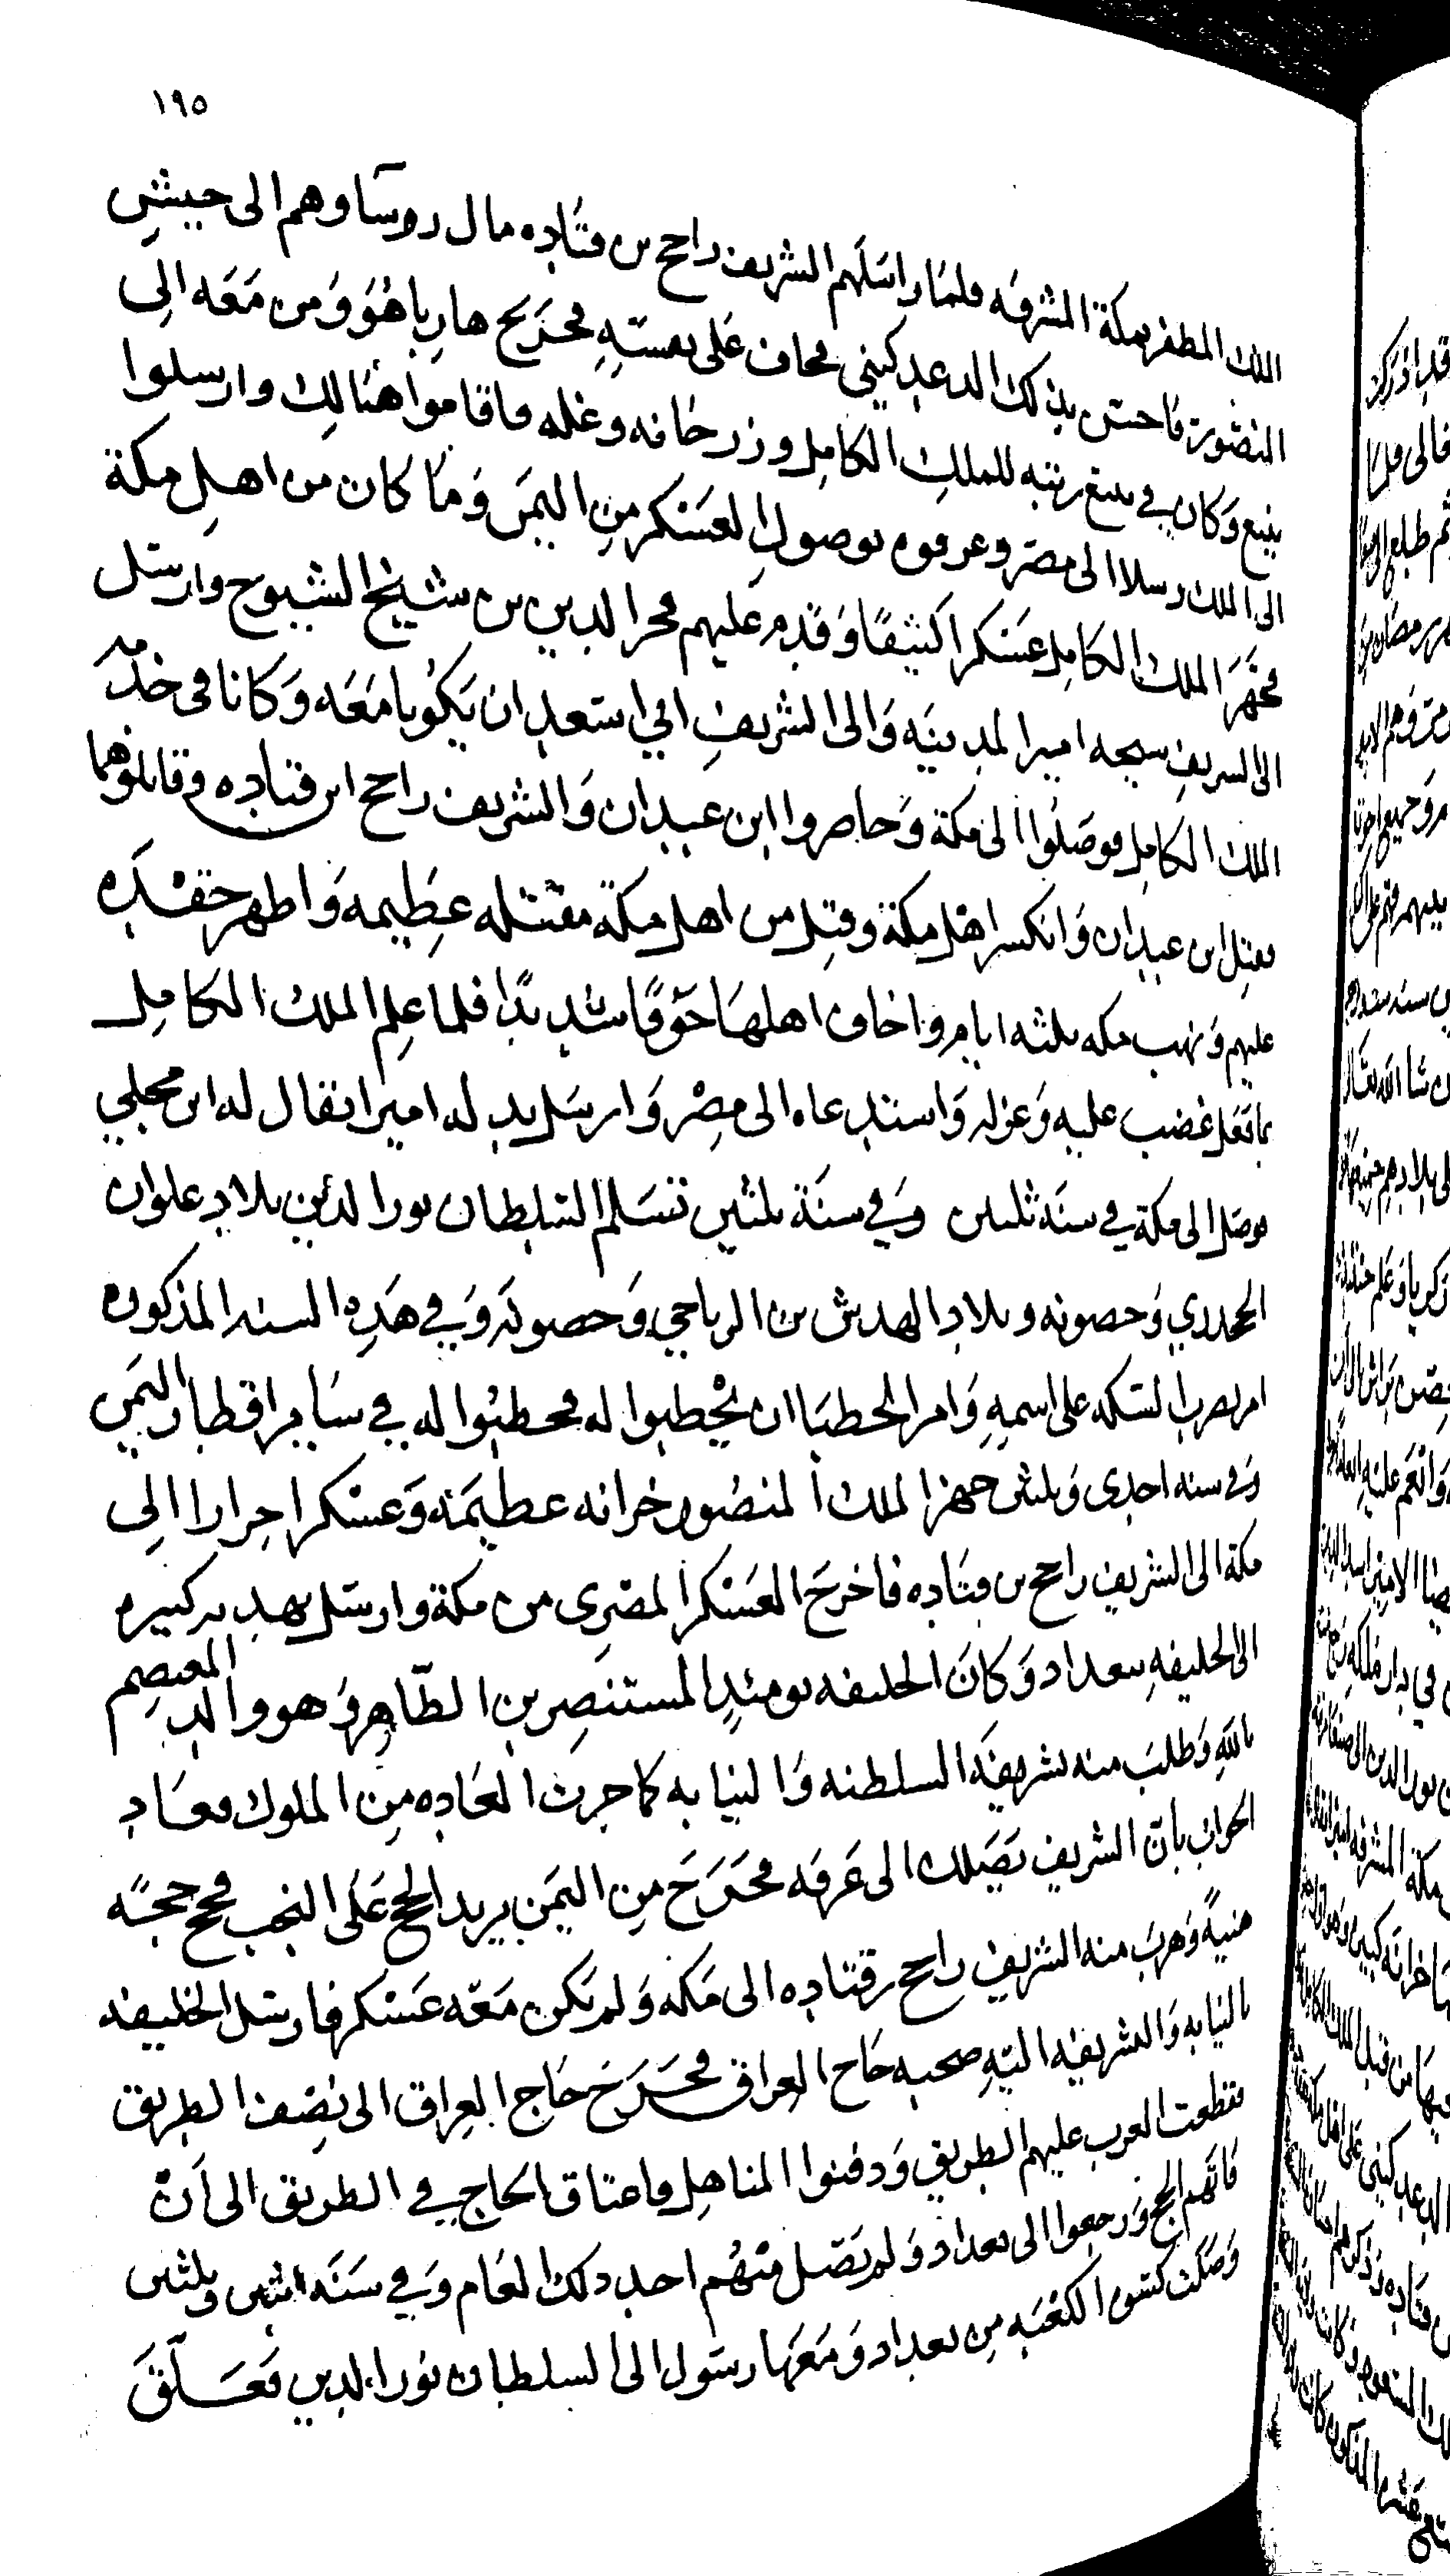 ١٩٥
الملك المظفر بمكة المشرفه فلما راسلهم الشريف راجح بن قتاده مال روسآوهم الى جيش
المنصور فاحس بذلك الدغدكيني فخاف على نفسه فخرج هاربا هو ومن معه الى
ينبع وكان في ينبع رتبه للملك الكامل وزردخانه وغله فاقاموا هنالك وارسلوا
الى الملك رسلا الى مصر وعرفوه بوصول العسكر من اليمن وما كان من اهل مكة
فجهز الملك الكامل عسكرا كثيفا وقدم عليهم فخر الدين بن شيخ الشيوخ وارسل
الى الشريف شيحه امير المدينه والى الشريف ابي سعد ان يكونا معه وكانا في خدمه
الملك الكامل فوصلوا الى مكة وحاصروا ابن عبدان والشريف راجح ابن قتاده وقاتلوهما
فقتل ابن عبدان وانكسر اهل مكة وقتل من اهل مكة مقتله عظيمه واظهر حقده
عليهم ونهب مكه ثلثه ايام واخاف اهلها خوفا شديدا فلما علم الملك الكامل
بما فعل غضب عليه وعزله واستدعاه الى مصر وارسل بدله اميرا يقال له ابن مجلي
فوصل الى مكة في سنه ثلثين وفي سنة ثلثين تسلم السلطان نور الدين بلاد علوان
الجحدري وحصونه وبلاد الهدش بن الرياحي وحصونه وفي هذه السنه المذكوره
امر بضرب السكه على اسمه وامر الخطبا ان يخطبوا له فخطبوا له في ساير اقطار اليمن
وفي سنه احدى وثلثين جهز الملك المنصور خزانه عظيمة وعسكرا جرارا الى
مكة الى الشريف راجح بن قتاده فاخرج العسكر المصرى من مكة وارسل بهديه كبيره
الى الخليفه ببغداد وكان الخليفه يومئذ المستنصر بن الظاهر وهو والد المعتصم
بالله وطلب منه تشريفة السلطنه والنيابه كما جرت العاده من الملوك فعاد
الجواب بان الشريف تصلك الى عرفه فخرج من اليمن يريد الحج على النجب فحج حجه
هنيه وهرب منه الشريف راجح بن قتاده الى مكه ولم تكن معه عسكر فارسل الخليفه
بالنيابه والتشريفه اليه صحبه حاج العراق فخرج حاج العراق الى نصف الطريق
فقطعت العرب عليهم الطريق ودفنوا المناهل واعتاق الحاج في الطريق الى ان
فاتهم الحج ورجعوا الى بغداد ولم تصل منهم احد ذلك العام وفي سنه اثنين وثلثين
وصلت كسوة الكعبه من بغداد ومعها رسول الى السلطان نور الدين فعلق